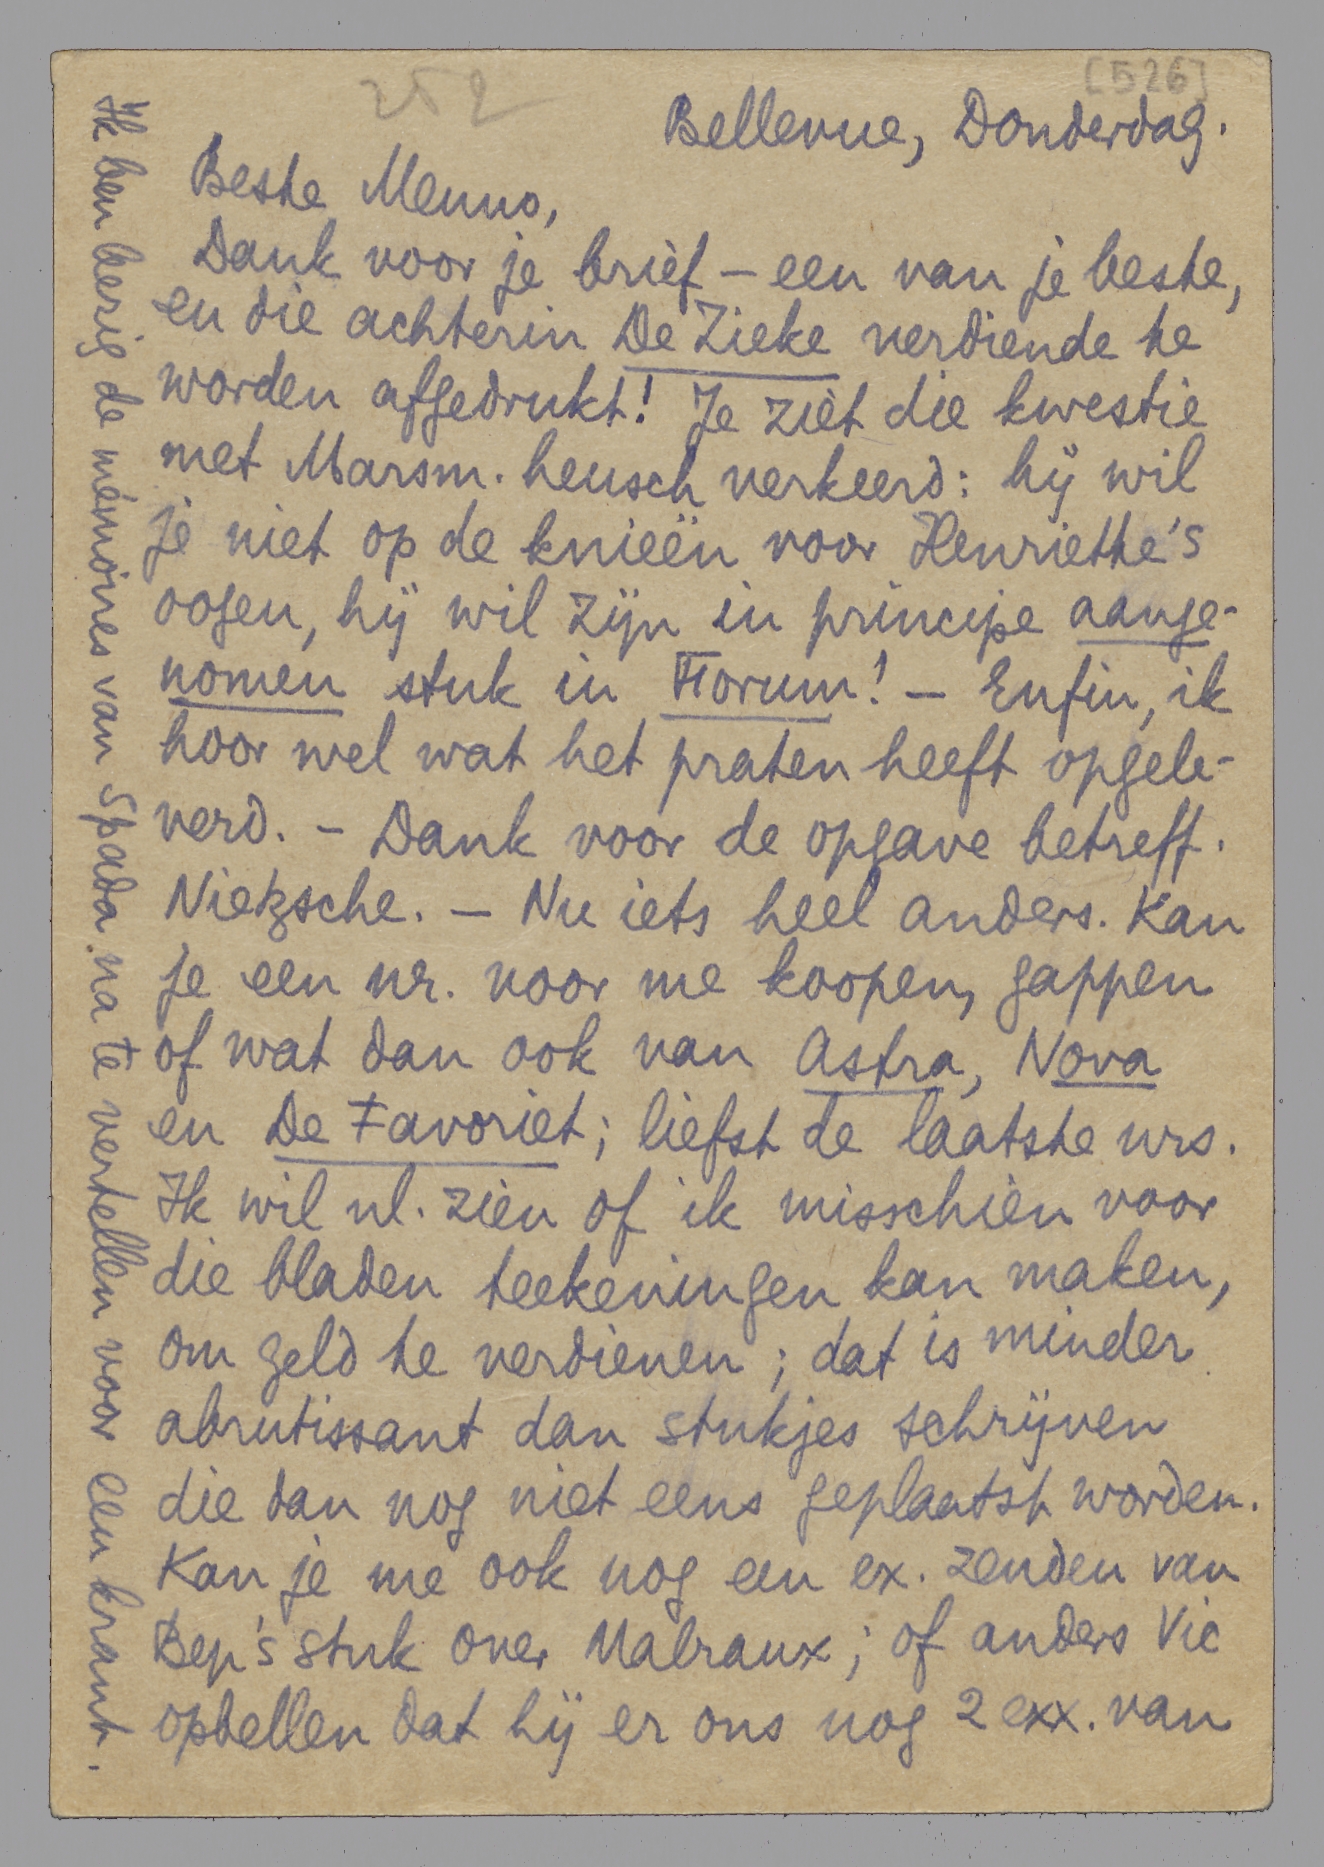 252
[526]
Bellevue, Donderdag.
Beste Menno,
Dank voor je brief – een van je beste,
en die achterin De Zieke verdiende te
worden afgedrukt! Je ziet die kwestie
met Marsm. heusch verkeerd: hij wil
je niet op de knieën voor Henriette's
oogen, hij wil zijn in principe aange-
nomen stuk in Forum! – Enfin, ik
hoor wel wat het praten heeft opgele-
verd. – Dank voor de opgave betreff.
Nietzsche. – Nu iets heel anders. Kan
je een nr. voor me koopen, gappen
of wat dan ook van Astra, Nova
en De Favoriet; liefst de laatste nrs.
Ik wil nl. zien of ik misschien voor
die bladen teekeningen kan maken,
om geld te verdienen; dat is minder
abrutissant dan stukjes schrijven
die dan nog niet eens geplaatst worden.
Kan je me ook nog een ex. zenden van
Bep's stuk over Malraux; of anders Vic
opbellen dat hij er ons nog 2 exx. van
Ik ben bezig de mémoires van Spada na te vertellen voor een krant.